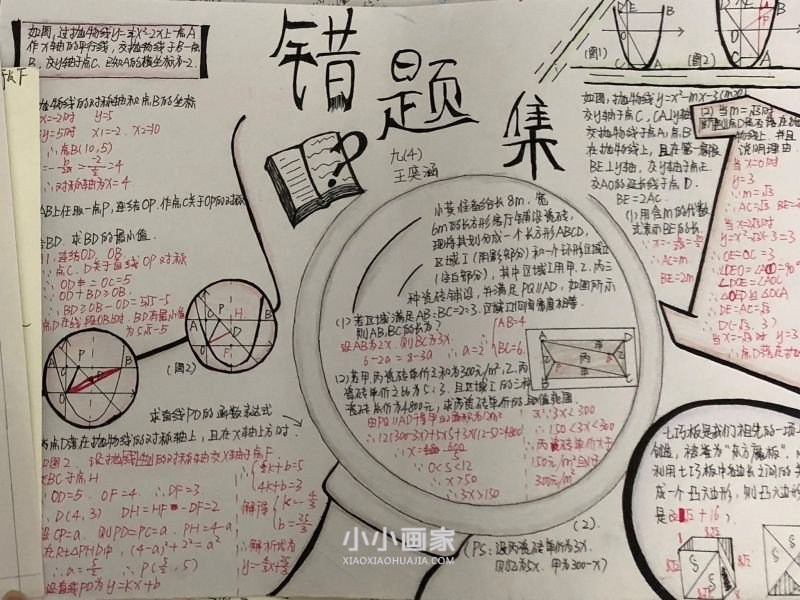 错题集
九(4)
王奕涵
如图,过抛物线y=¼x²-2x上一点A
作x轴的平行线,交抛物线于另一点
B,交y轴于点C,已知A的横坐标为-2.
抛物线的对称轴和点B的坐标
x=-2时 y=5
y=5时 x1=-2 x2=10
∴点B(10,5)
∴对称轴为x=4.
AB上任取一点P,连结OP,作点C关于OP的对称
BD.求BD的最小值.
连结OD、OB.
∵点C、D关于直线OP对称
∴OD=OC=5
∴OD+BD≥OB.
∴BD≥OB-OD=5√5-5
点D在线段OB上时,BD有最小值
为5√5-5
(图2)
求直线PD的函数表达式
点D落在抛物线的对称轴上,且在x轴上方时.
如图2 设抛物线的对称轴交x轴于点F.
交BC于点H
∴OD=5 OF=4 ∴DF=3
∴D(4,3) DH=HF-DF=2
设CP=a 则PD=PC=a PH=4-a
在Rt△PHD中,(4-a)²+2²=a²
∴a=5/2 ∴P(5/2,5)
设直线PD为y=kx+b
4k+b=3
解得
∴解析式为
小英准备给长8m,宽
6m的长方形客厅铺设瓷砖,
现将其划分成一个长方形ABCD,
区域Ⅰ(阴影部分)和一个环形区域Ⅱ
(空白部分),其中区域Ⅰ用甲、乙、丙三
种瓷砖铺设,并满足PQ∥AD,如图所示
(1)若区域Ⅰ满足AB:BC=2:3,区域Ⅱ四周宽度相等.
则AB,BC的长为?
设AB为2x.则BC为3x.
6-2a=8-3a ∴a=2
AB=4
BC=6.
(2)若甲、丙瓷砖单价之和为300元/m²,乙、丙
瓷砖单价之比为5:3,且区域Ⅰ的三种
瓷砖总价为4800元,求丙瓷砖单价的取值范围.
由PQ∥AD可得甲的面积为12m²
∴12(300-3x)+5x·S+3x(12-S)=4800
∴0<S<12
∴x>50
∴3x>150
又∵3x<300
∴150<3x<300
∴丙瓷砖单价大于
150元/m²且小于
300元/m².
(2).
(PS:设丙瓷砖单价为3x.
则乙为5x.甲为300-x)
(图1)
(图2)
如图,抛物线y=x²-mx-3(m>0)
交y轴于点C,CA⊥y轴
交抛物线于点A,点B
在抛物线上,且在第一象限
BE⊥y轴,交y轴于点E
交AO的延长线于点D.
BE=2AC.
(1)用含m的代数
式表示BE的长.
∴AC=m
BE=2m
(2)当m=√3时
判断点D是否落在抛
物线上,并且
说明理由.
当x=0时
y=3
∵m=√3
∴AC=√3
当x=2√3时
y=x²-√3x-3=3
∴OE=OC=3
∠DOE=∠AOC
∴△OED≌△OCA
∴DE=AC=√3
D(-√3,3)
∴点D落在抛物
七巧板是我们祖先的一项
创造,被誉为“东方魔板”,
利用七巧板中各边长之间的
成一个凸六边形,则凸六边形
小小画家
XIAOXIAOHUAJIA.COM